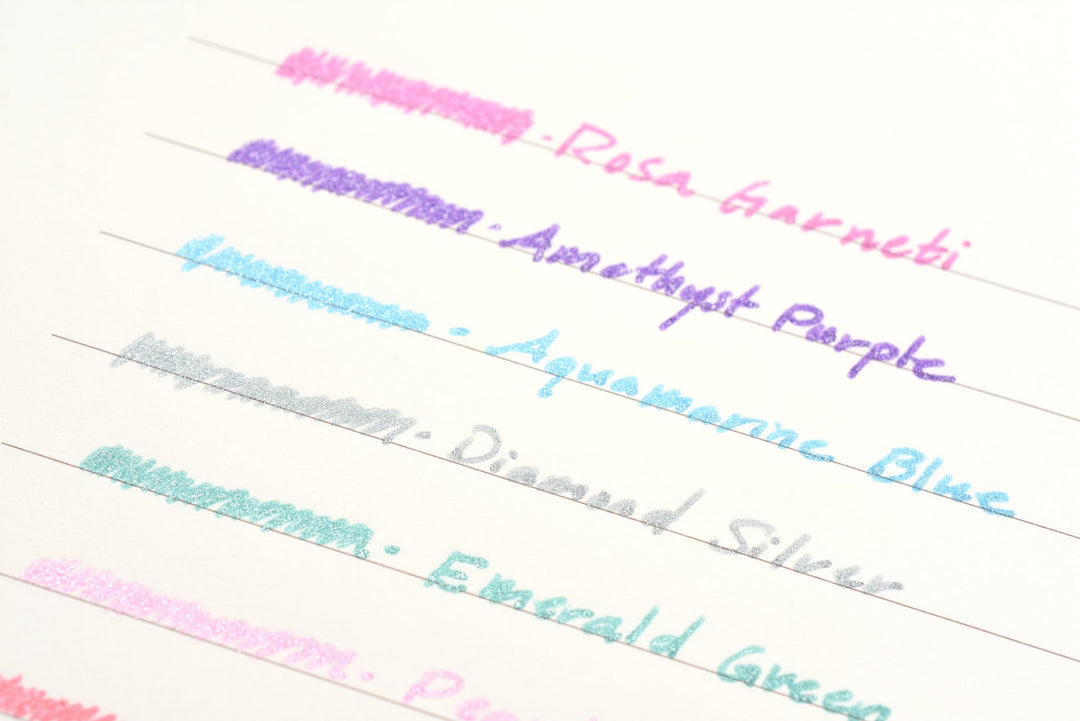 - Rosa Garnebi
- Amethyst Purple
- Aquamarine Blue
- Diamond Silver
- Emerald Green